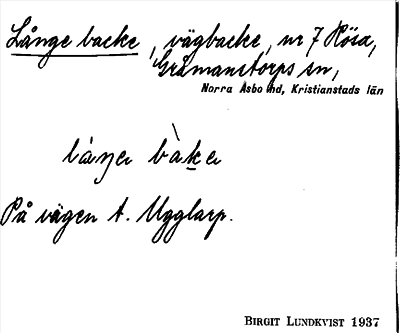 Långe backe, vägbacke, nr 7 Röså,
Gråmanstorps sn,
Norra Åsbo hd, Kristianstads län
På vägen t. Ugglarp.
BIRGIT LUNDKVIST 1937